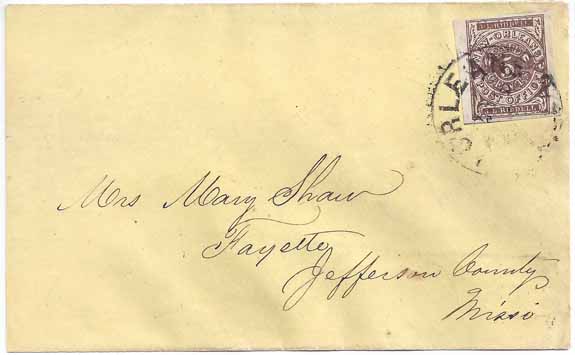 J.L. RIDDELL
NEW-ORLEANS
POST OFFICE
J.L. RIDDELL
ORLEA
Mrs Mary Shaw
Fayette
Jefferson County
Missi